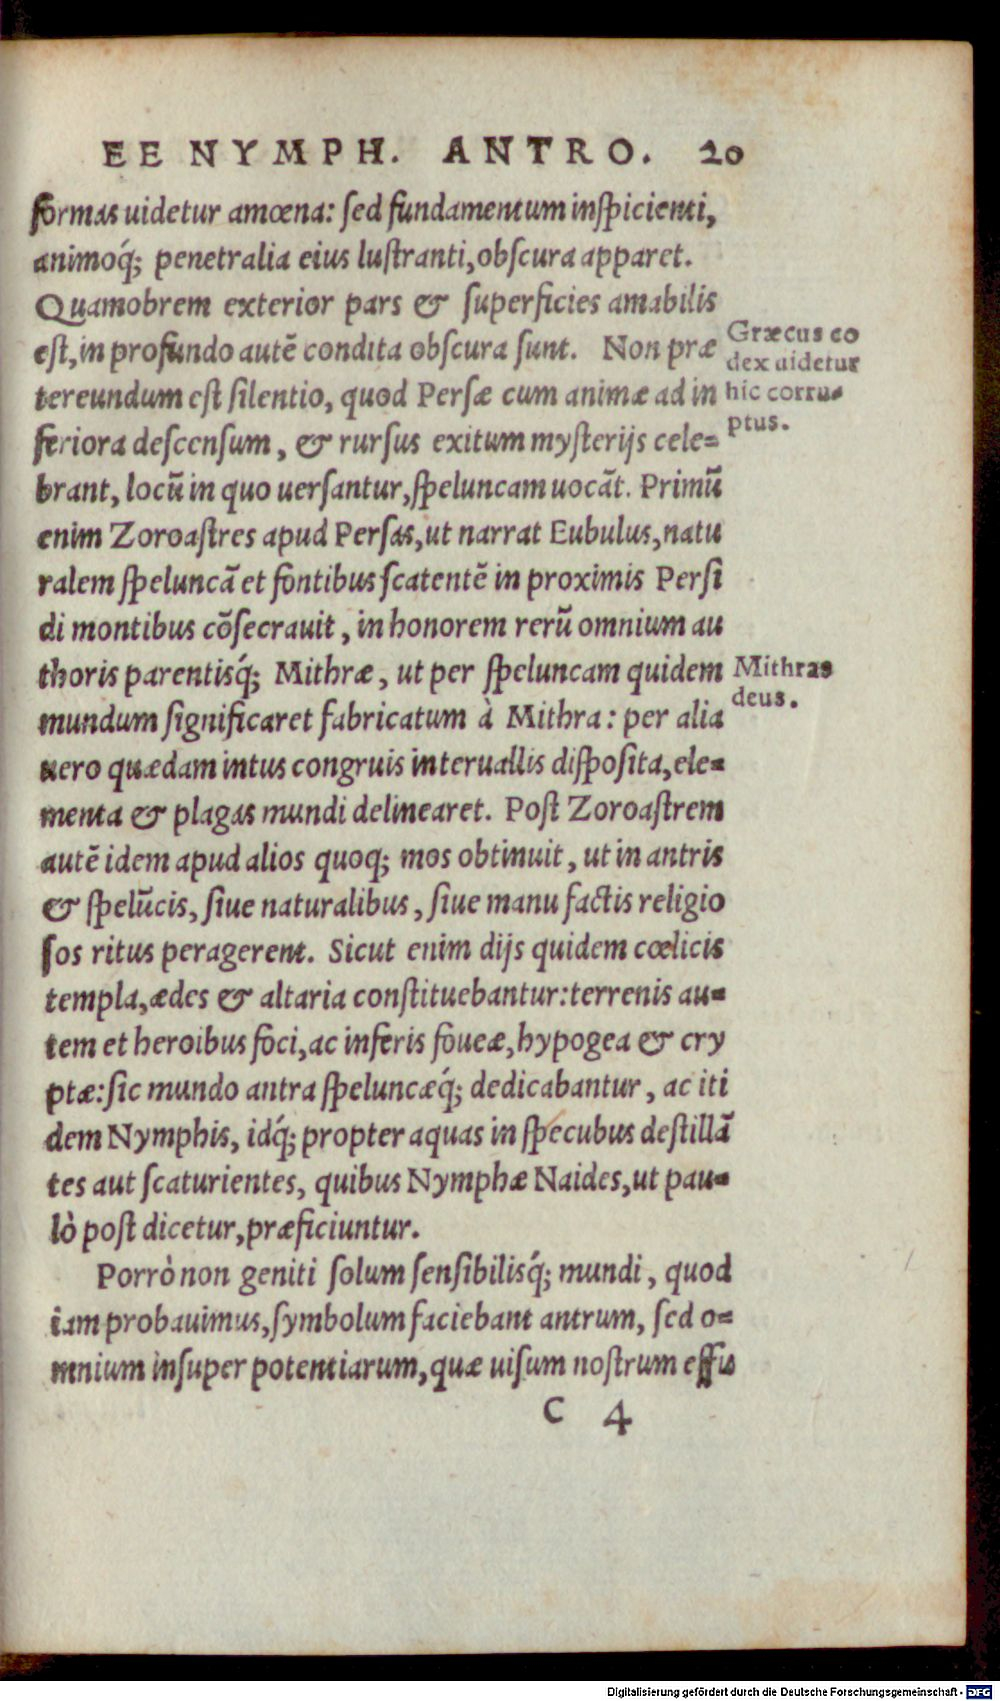 EE NYMPH. ANTRO. 20
formas uidetur amœna: ſed fundamentum inſpicienti,
animoq́; penetralia eius luſtranti, obſcura apparet.
Quamobrem exterior pars & ſuperficies amabilis
eſt, in profundo autē condita obſcura ſunt. Non præ
tereundum eſt ſilentio, quod Perſæ cum animæ ad in
feriora deſcenſum, & rurſus exitum myſterijs cele-
brant, locū in quo uerſantur, ſpeluncam uocāt. Primū
enim Zoroaſtres apud Perſas, ut narrat Eubulus, natu
ralem ſpeluncā et fontibus ſcatentē in proximis Perſi
di montibus cōſecrauit, in honorem rerū omnium au
thoris parentisq́; Mithræ, ut per ſpeluncam quidem
mundum ſignificaret fabricatum à Mithra: per alia
uero quædam intus congruis interuallis diſpoſita, ele-
menta & plagas mundi delinearet. Poſt Zoroaſtrem
autē idem apud alios quoq; mos obtinuit, ut in antris
& ſpelūcis, ſiue naturalibus, ſiue manu factis religio
ſos ritus peragerent. Sicut enim dijs quidem cœlicis
templa, ædes & altaria conſtituebantur: terrenis au-
tem et heroibus foci, ac inferis foueæ, hypogea & cry
ptæ: ſic mundo antra ſpeluncæq́; dedicabantur, ac iti
dem Nymphis, idq́; propter aquas in ſpecubus deſtillā
tes aut ſcaturientes, quibus Nymphæ Naides, ut pau-
lò poſt dicetur, præficiuntur.
Porrò non geniti ſolum ſenſibilisq́; mundi, quod
iam probauimus, ſymbolum faciebant antrum, ſed o-
mnium inſuper potentiarum, quæ uiſum noſtrum effu
C 4
Græcus co
dex uidetur
hic corru-
ptus.
Mithras
deus.
Digitalisierung gefördert durch die Deutsche Forschungsgemeinschaft - DFG